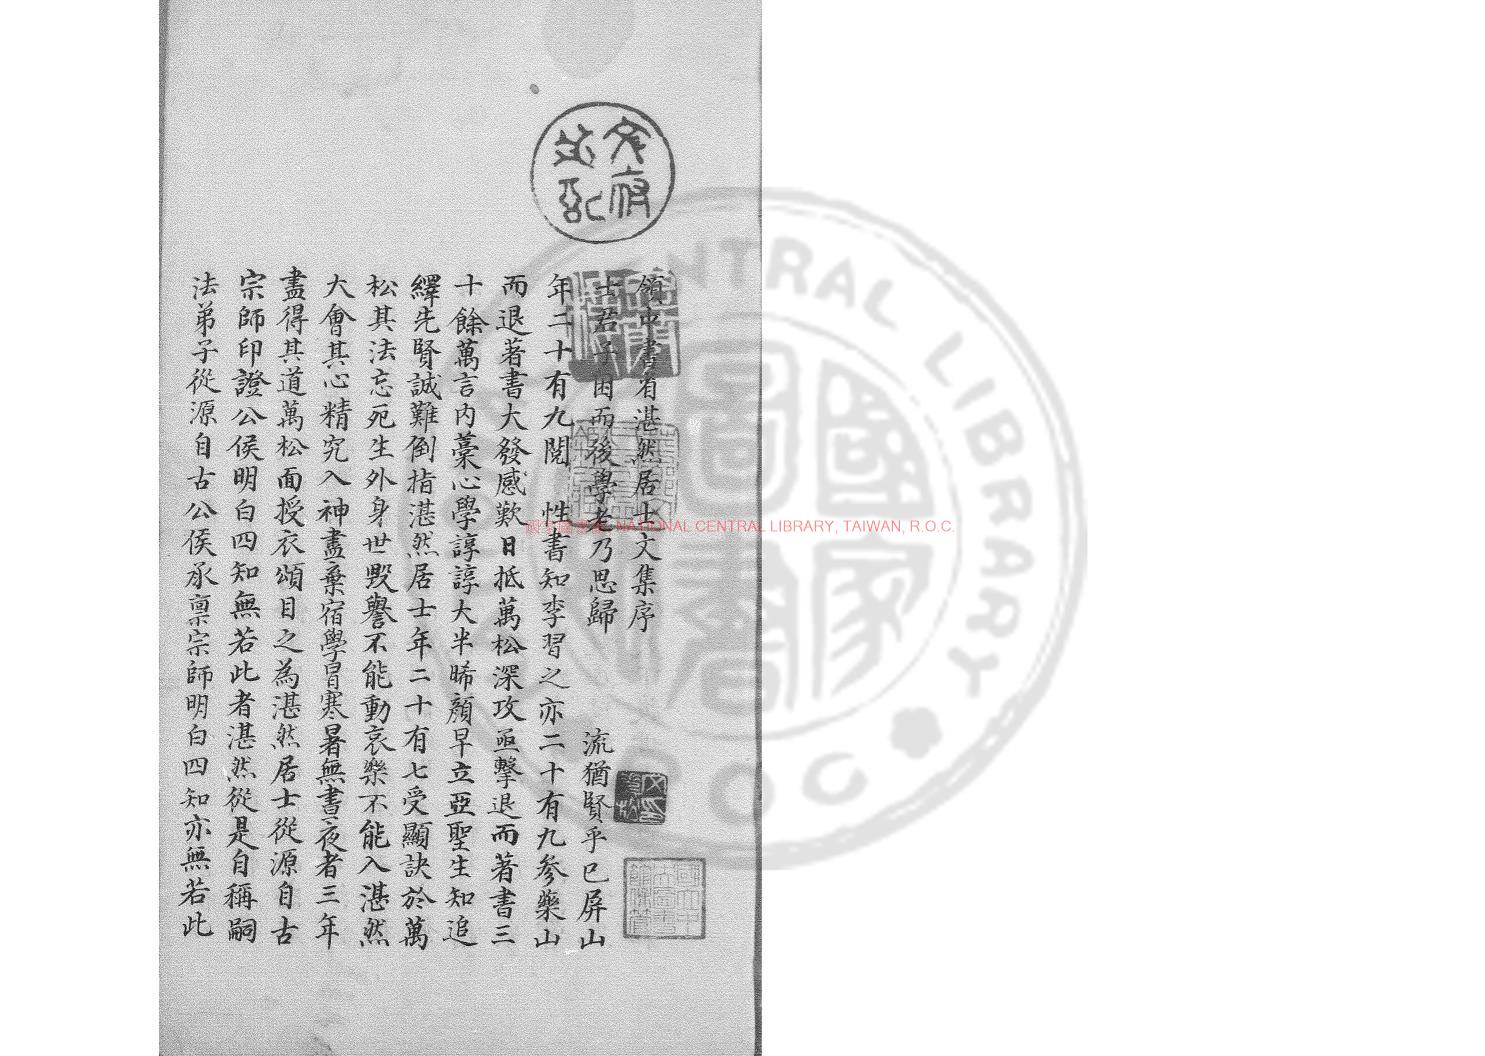 領中書省湛然居士文集序
士君子困而後學老乃思歸 流猶賢乎已屏山
年二十有九閱 性書知李習之亦二十有九參藥山
而退著書大發感歎日抵萬松深攻亟擊退而著書三
十餘萬言內藁心學諄諄大半晞顏早立亞聖生知追
繹先賢誠難倒指湛然居士年二十有七受顯訣於萬
松其法忘死生外身世毀譽不能動哀樂不能入湛然
大會其心精究入神盡棄宿學冒寒暑無晝夜者三年
盡得其道萬松面授衣頌目之為湛然居士從源自古
宗師印證公侯明白四知無若此者湛然從是自稱嗣
法弟子從源自古公侯承稟宗師明白四知亦無若此
文府
NATIONAL CENTRAL LIBRARY, TAIWAN, R.O.C.
國家圖書
CENTRAL LIBRARY
ROC